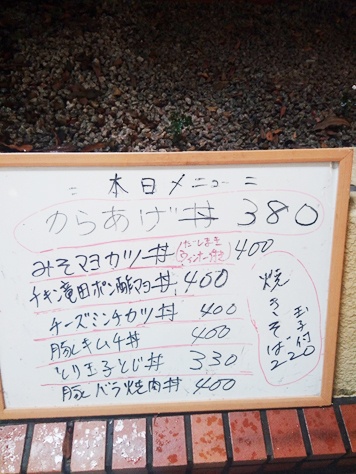 = 本日メニュー =
からあげ丼 380
みそマヨカツ丼 (だしまき ウィンナー付き) 400
チキン竜田ポン酢マヨ丼 400
チーズミンチカツ丼 400
豚キムチ丼 400
とり玉子とじ丼 330
豚バラ焼肉丼 400
焼きそば
玉子付
220